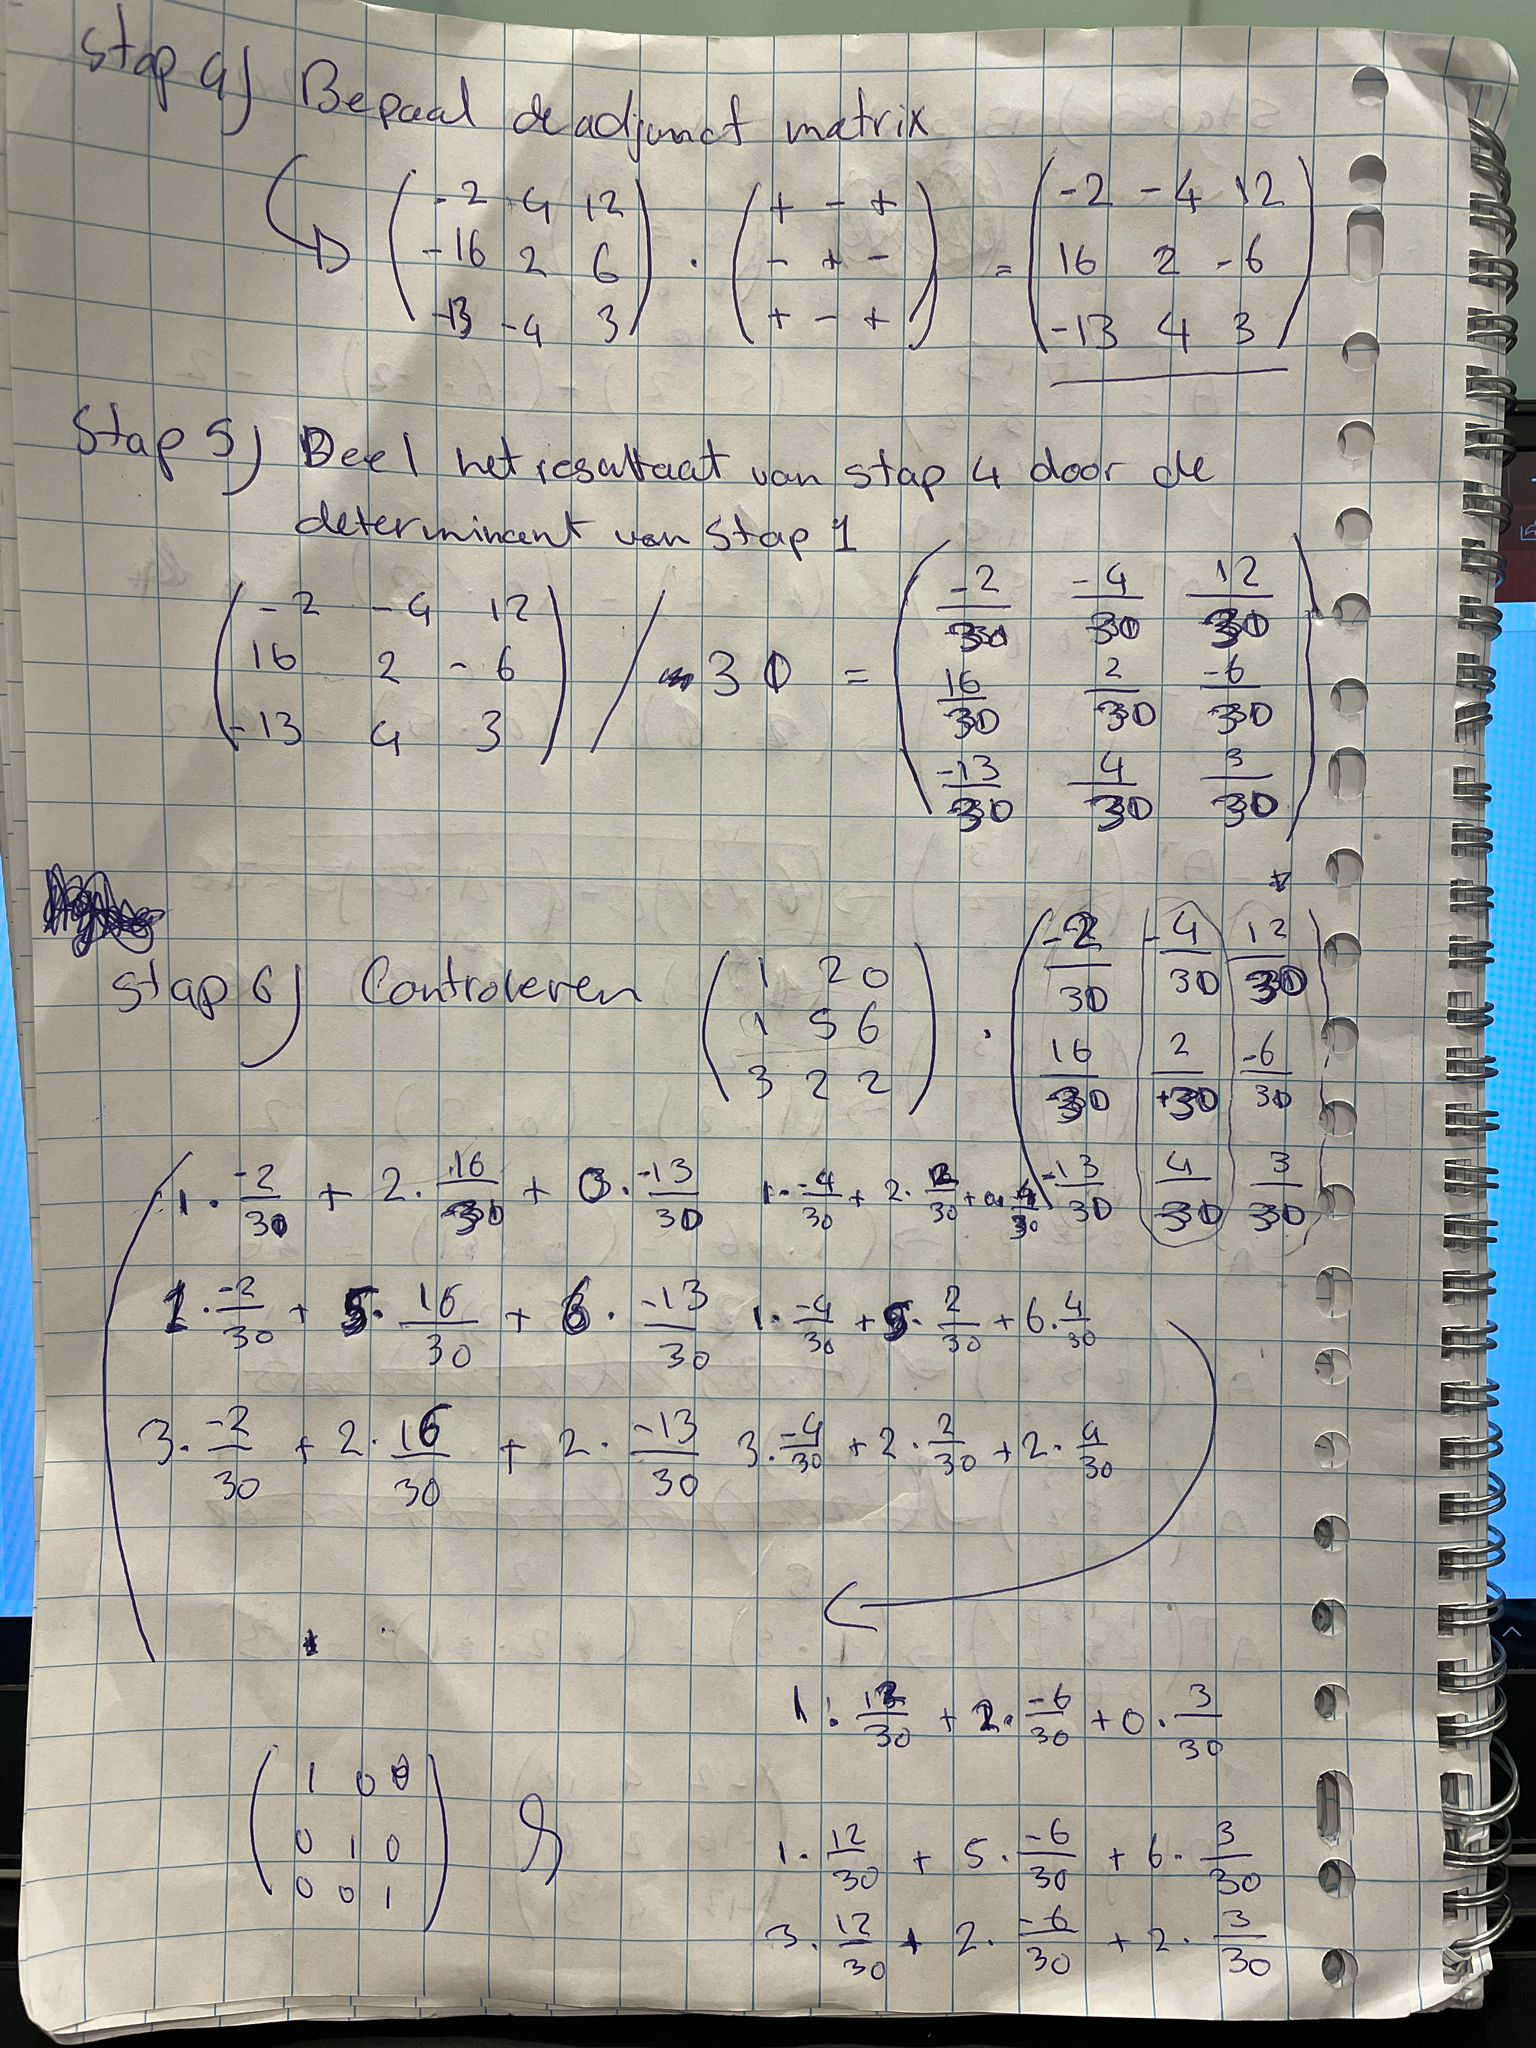 Stap 4) Bepaal de adjunct matrix
( -2 4 12 ) ( + - + ) ( -2 -4 12 )
( -16 2 6 ) . ( - + - ) = ( 16 2 -6 )
( -13 -4 3 ) ( + - + ) ( -13 4 3 )
Stap 5) Deel het resultaat van stap 4 door de
determinant van stap 1
( -2 -4 12 ) ( -2/30 -4/30 12/30 )
( 16 2 -6 ) / 30 = ( 16/30 2/30 -6/30 )
( -13 4 3 ) ( -13/30 4/30 3/30 )
Stap 6) Controleren
( 1 2 0 ) ( -2/30 -4/30 12/30 )
( 1 5 6 ) . ( 16/30 2/+30 -6/30 )
( 3 2 2 ) ( -13/30 4/30 3/30 )
1 · -2/30 + 2 · 16/30 + 0 · -13/30 1 · -4/30 + 2 · 2/30 + 0 · 4/30
1 · -2/30 + 5 · 16/30 + 6 · -13/30 1 · -4/30 + 5 · 2/30 + 6 · 4/30
3 · -2/30 + 2 · 16/30 + 2 · -13/30 3 · -4/30 + 2 · 2/30 + 2 · 4/30
1 · 12/30 + 2 · -6/30 + 0 · 3/30
1 · 12/30 + 5 · -6/30 + 6 · 3/30
3 · 12/30 + 2 · -6/30 + 2 · 3/30
( 1 0 0 )
( 0 1 0 )
( 0 0 1 )